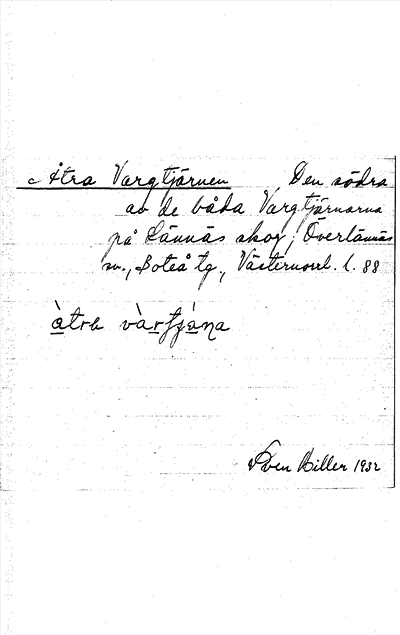 Åtra Vargtjärnen Den södra
av de båda Vargtjärnarna
på Lännäs skog, Överlännäs
sn., Boteå tg., Västernorrl. l. 88
àtra vàrtjạ̈na
Sven Biller 1932